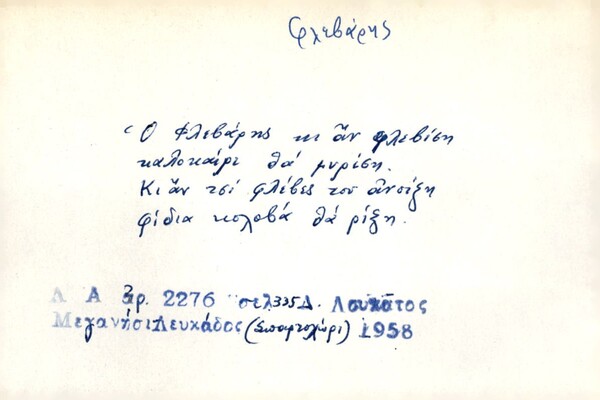 Φλεβάρης
Ὁ Φλεβάρης κι ἄν φλεβίση
καλοκαίρι θά μυρίση.
Κι ἄν τσί φλέβες του ἀνοίξη
φίδια κολοβά θά ρίξη.
Λ Α ἀρ. 2276 σελ 335 Δ. Λουκᾶτος
Μεγανήσι Λευκάδος (Σπαρτοχώρι) 1958